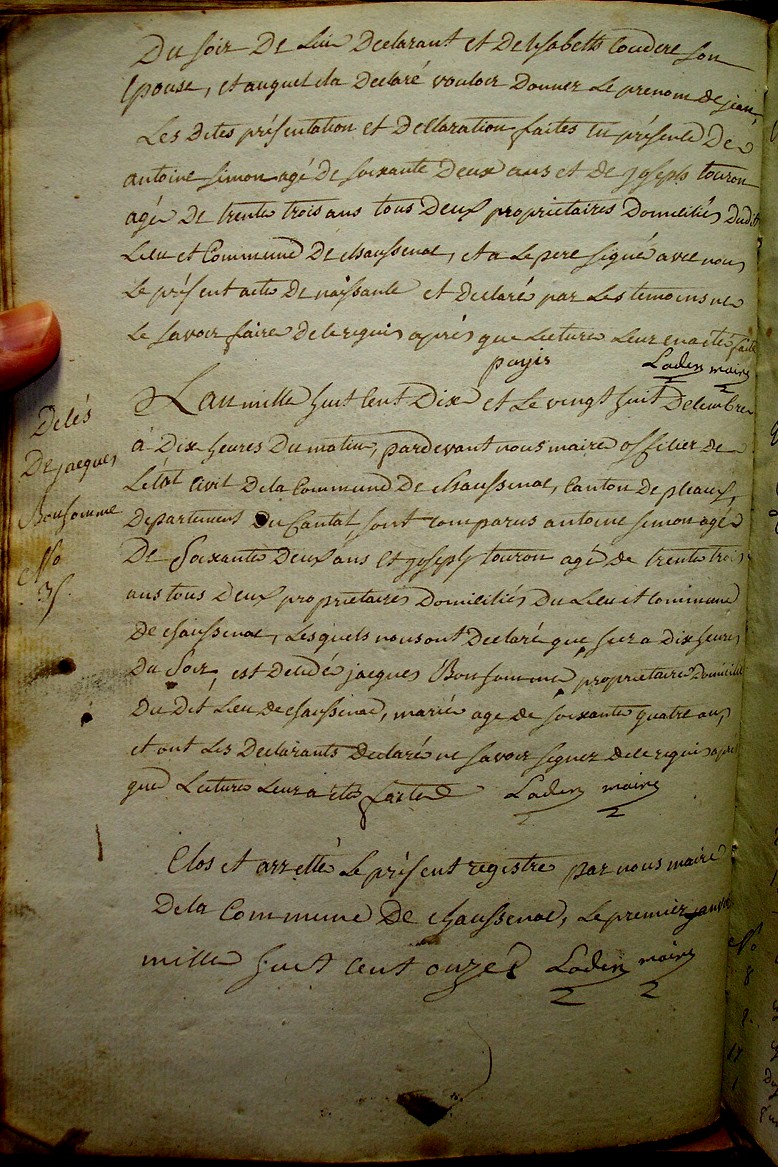 Du soir de Lui Declarant et Delisabeth Coudere son
Epouse, et auquel il a Declaré vouloir Donner Le prenom de jean,
Les Dites présentation et Declaration faites en présence De
antoine simon agé de soixante Deux ans et de joseph touron
agé De trente trois ans tous Deux proprietaires Domiciliés Dudit
Lieu et Commune De chaussenac, et a Le pere signé avec nous
Le présent acte De naissance et Declaré par Les temoins ne
Le savoir faire de ce requis aprés que Lecture Leur en a été faite
Laden maire
L'an mille huit Cent Dix et Le vingt huit Decembre
à Dix heures Du matin, pardevant nous maire officier de
L'étât Civil De la Commune De chaussenac, Canton De pleaux,
Departement Du Cantal, sont comparus antoine simon agé
De soixante Deux ans et joseph touron agé de trente trois
ans tous Deux proprietaires Domiciliés Du Lieu et Commune
De chaussenac, Lesquels nous ont Declaré que hier a Dix heures
Du soir, est Décédé jacques Bonhomme proprietaire Domicilié
Du Dit Lieu de chaussenac, marié agé de soixante quatre ans,
et ont Les Declarants Declaré ne savoir signer de ce requis aprés
que Lecture Leur a eté faite Laden maire
Décés
De jacques
Bonhomme
No
35.
Clos et arretté Le présent registre par nous maire
De la Commune De chaussenac, Le premier janvier
mille huit Cent onze Laden maire